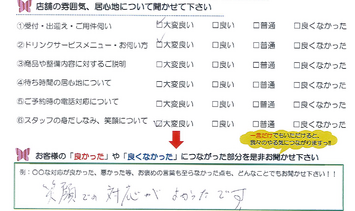 店舗の雰囲気、居心地について聞かせて下さい
①受付・出迎え・ご用件伺い ☑大変良い □良い □普通 □良くなかった
②ドリンクサービスメニュー・お伺い方 ☑大変良い □良い □普通 □良くなかった
③商品や整備内容に対するご説明 □大変良い □良い □普通 □良くなかった
④待ち時間の居心地について □大変良い □良い □普通 □良くなかった
⑤ご予約時の電話対応について □大変良い □良い □普通 □良くなかった
⑥スタッフの身だしなみ、笑顔について ☑大変良い □良い □普通 □良くなかった
一言だけでもいただけると、
我々のやる気につながりますっ!!
お客様の「良かった」や「良くなかった」につながった部分を是非お聞かせ下さい
例：〇〇な対応が良かった、悪かった等、お褒めの言葉も至らなかった点も、どんなことでもお聞かせ下さい！！
笑顔での対応がよかったです